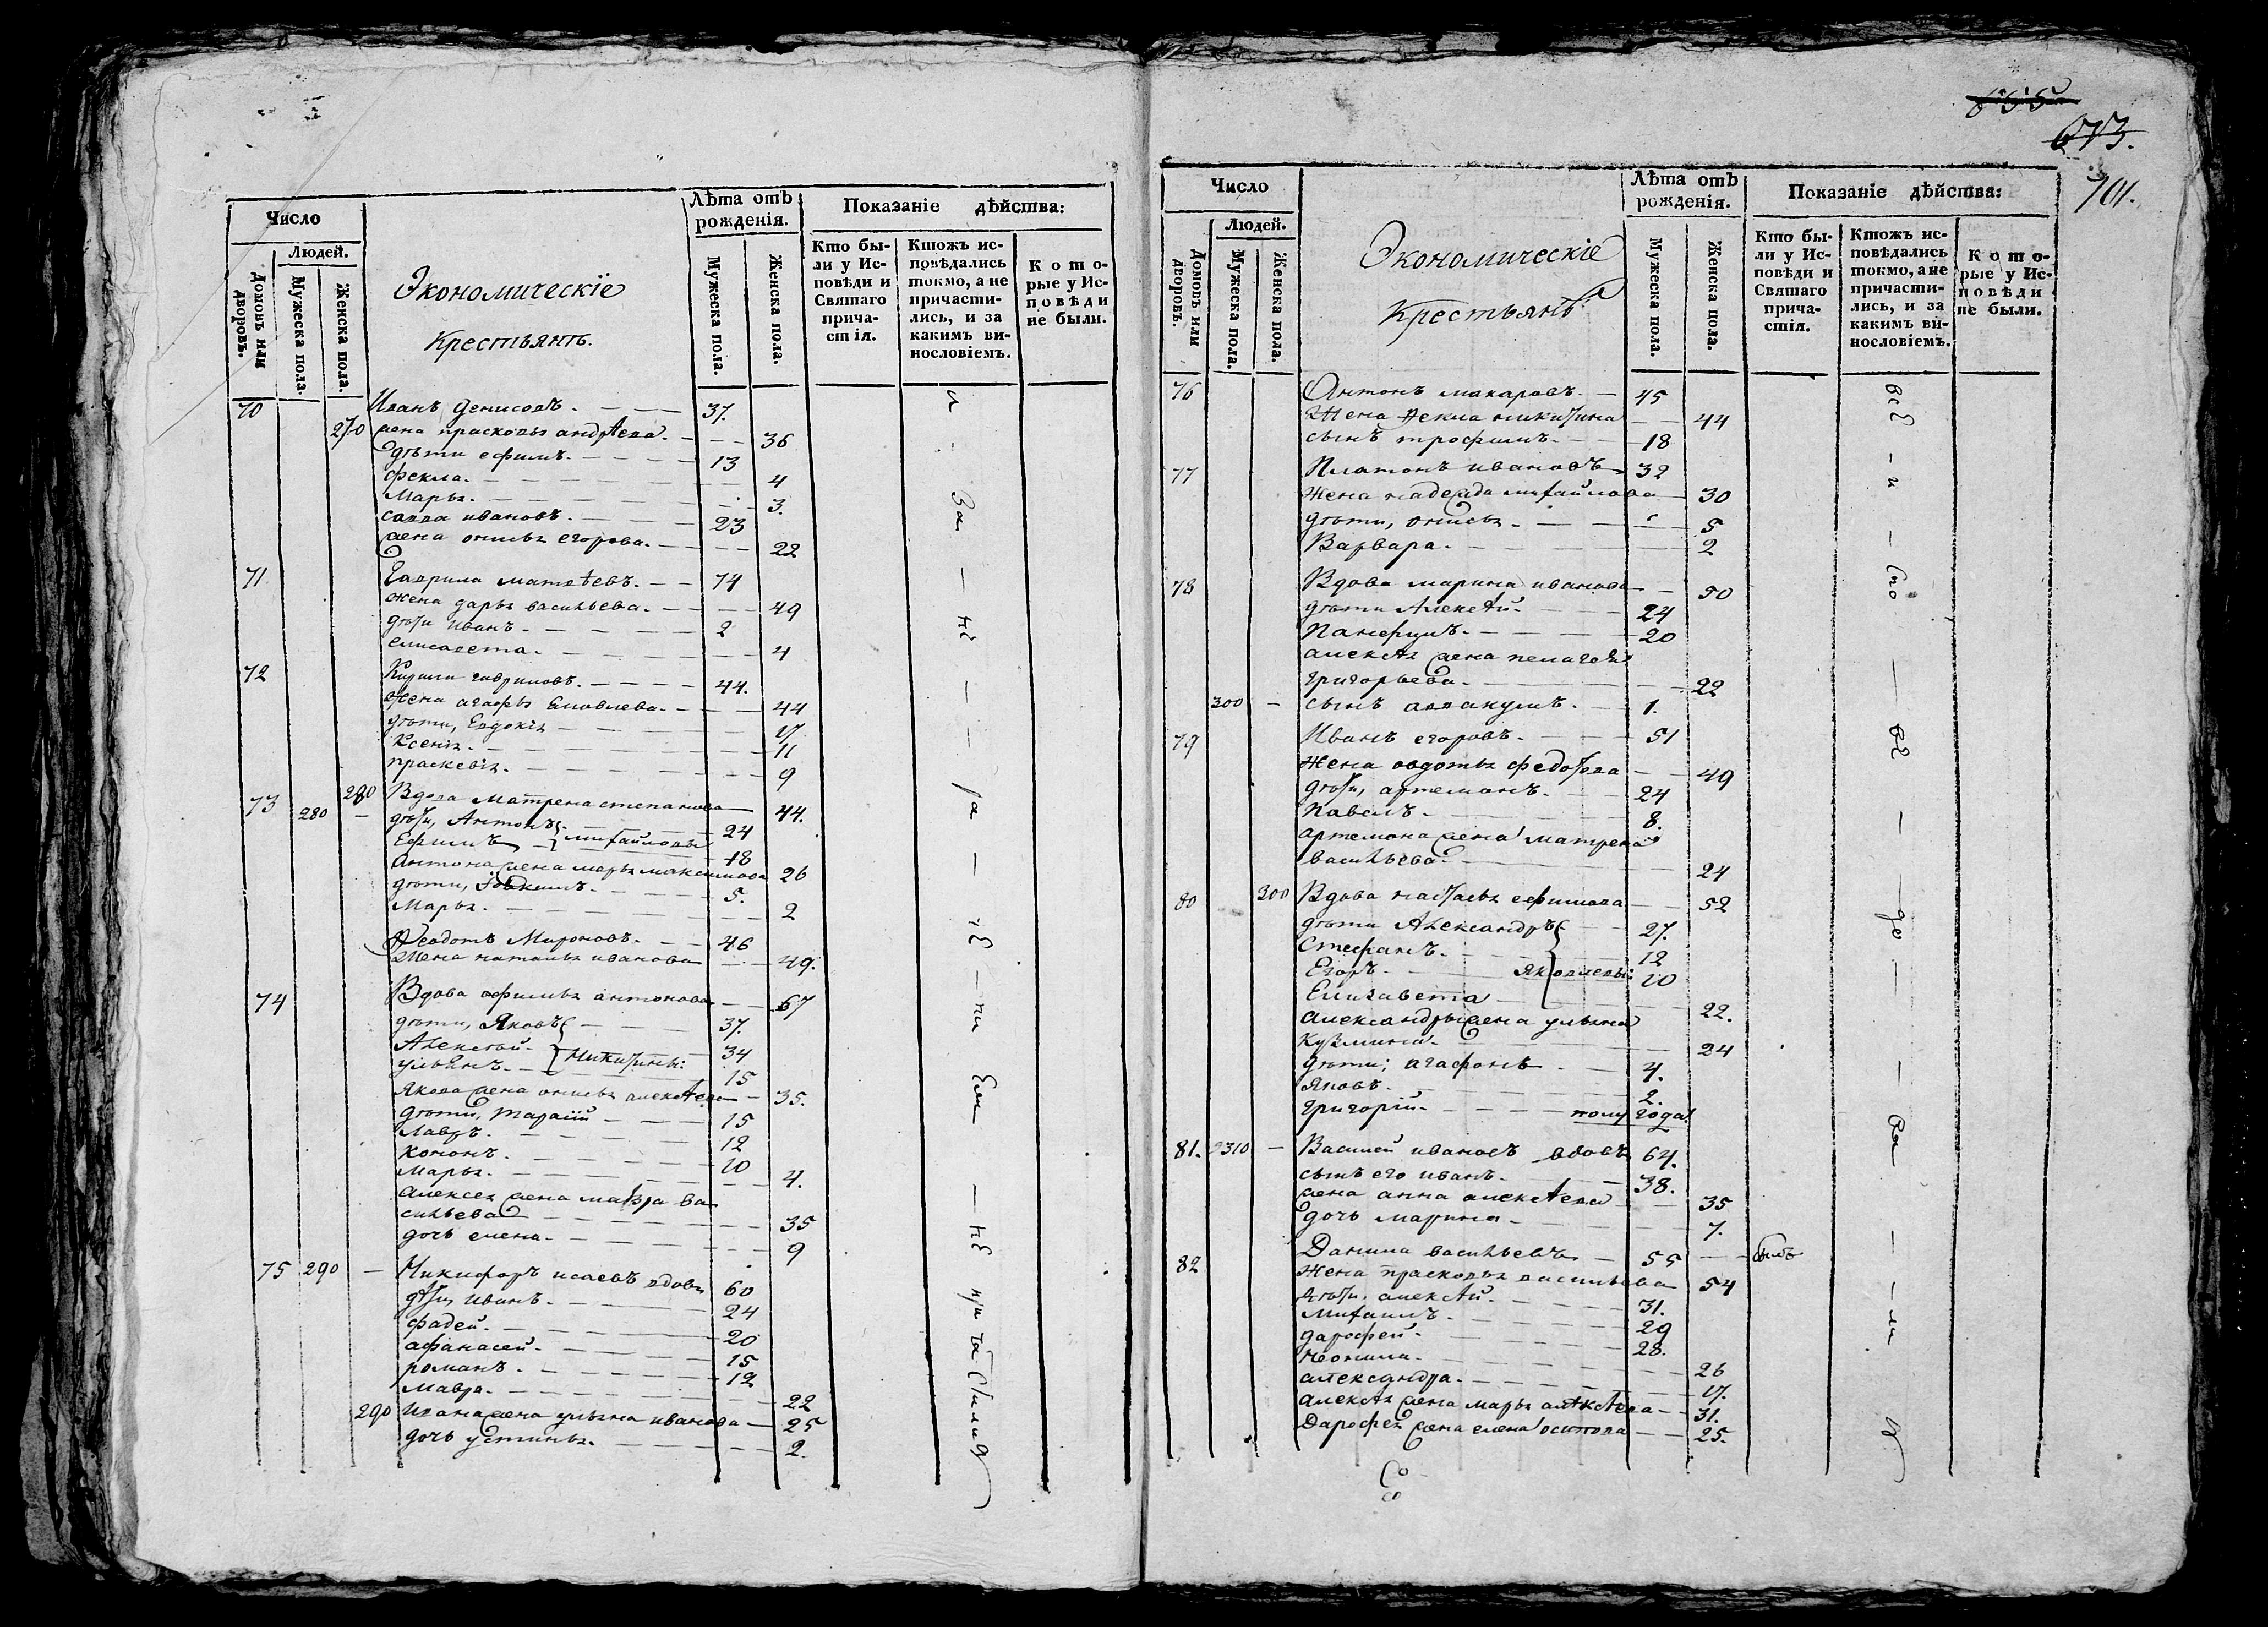 Число
Людей.
Домовъ или дворовъ.
Мужеска пола.
Женска пола.
Экономическіе
Крестьянѣ.
Лѣта отъ рожденія.
Мужеска пола.
Женска пола.
Показаніе дѣйства:
Кто бы-
ли у Ис-
повѣди и
Святаго
прича-
стія.
Ктожъ ис-
повѣдались
токмо, а не
причасти-
лись, и за
какимъ ви-
нословіемъ.
Кото-
рые у Ис-
повѣди
не были.
70 Иванъ Денисовъ. 37.
270 жена прасковья андрѣева. 36
дѣти ефимъ. 13
фекла. 4
Марья. 3.
савва ивановъ. 23
жена онисья егорова. 22
71 Гаврила матвѣевъ. 74
жена дарья васильева. 49
дѣти иванъ. 2
елисавета. 4
72 Кирила гавриловъ. 44.
жена агафья Еховлева. 44
дѣти, Евдокія 17
Ксенія. 11
праскевія. 9
73 280 280 Вдова матрена степанова 44.
дѣти, Антонъ 24
Ефимъ михайловы 18
антона жена марья максимова 26
дѣти, 5.
Марья. 2
Феодотъ Мироновъ. 46
Жена наталья иванова 49.
74 Вдова афимья антонова 67
дѣти, Яковъ 37.
Алексѣй. Никитины: 34
ульянъ. 15
якова жена онисья алексѣева 35.
дѣти, Тарасій 15
лавръ. 12
кононъ. 10
марья. 4.
алексея жена мавра ва
сильева 35
дочь елена. 9
75 290 Никифоръ исаевъ вдовъ 60
дѣти иванъ. 24
фадей. 20
афанасей. 15
романъ. 12
мавра. 22
290 Ивана жена ульяна иванова 25
дочь устинья. 2.
а - за - не - ра - че - ни ем - не при ча стились
655
673.
701.
Число
Людей.
Домовъ или дворовъ.
Мужеска пола.
Женска пола.
Экономическіе
Крестьянѣ
Лѣта отъ рожденія.
Мужеска пола.
Женска пола.
Показаніе дѣйства:
Кто бы-
ли у Ис-
повѣди и
Святаго
прича-
стія.
Ктожъ ис-
повѣдались
токмо, а не
причасти-
лись, и за
какимъ ви-
нословіемъ.
Кото-
рые у Ис-
повѣди
не были.
76 Антонъ макаровъ. 45
Жена Фекла никитина 44
сынъ трофимъ. 18
77 Платонъ ивановъ 32
жена надежда михайлова 30
дѣти, онисья. 5
Варвара. 2
78 Вдова марина иванова 50
дѣти Алексѣй. 24
Панфилъ. 20
алексѣя жена пелагея
григорьева. 22
300 сынъ аввакумъ. 1.
79 Иванъ егоровъ. 51
жена авдотья федотова 49
дѣти, артемонъ. 24
павелъ. 8.
артемона жена матрена
васильева. 24
80 300 Вдова настасья ефимова 52
дѣти Александръ 27.
Стефанъ. 12
Егоръ. яковлевы: 10
Елизавета 22.
александры жена ульяна
Кузмина. 24
дѣти; агафонъ 4.
яковъ. 2.
григорій. полу года.
81. 310 Василей ивановъ вдовъ 64.
сынъ его иванъ. 38.
жена анна алексѣева 35
дочь марина. 7.
82 Данила васильевъ 55 былъ
жена прасковья васильева 54
дѣти, алексѣй. 31.
михаилъ. 29
дарофей. 28.
неонила. 26
александра. 17.
алексѣя жена марья алексѣева 31.
Дарофея жена елена осипова 25.
все - и - спо - ве - до - ва - ли